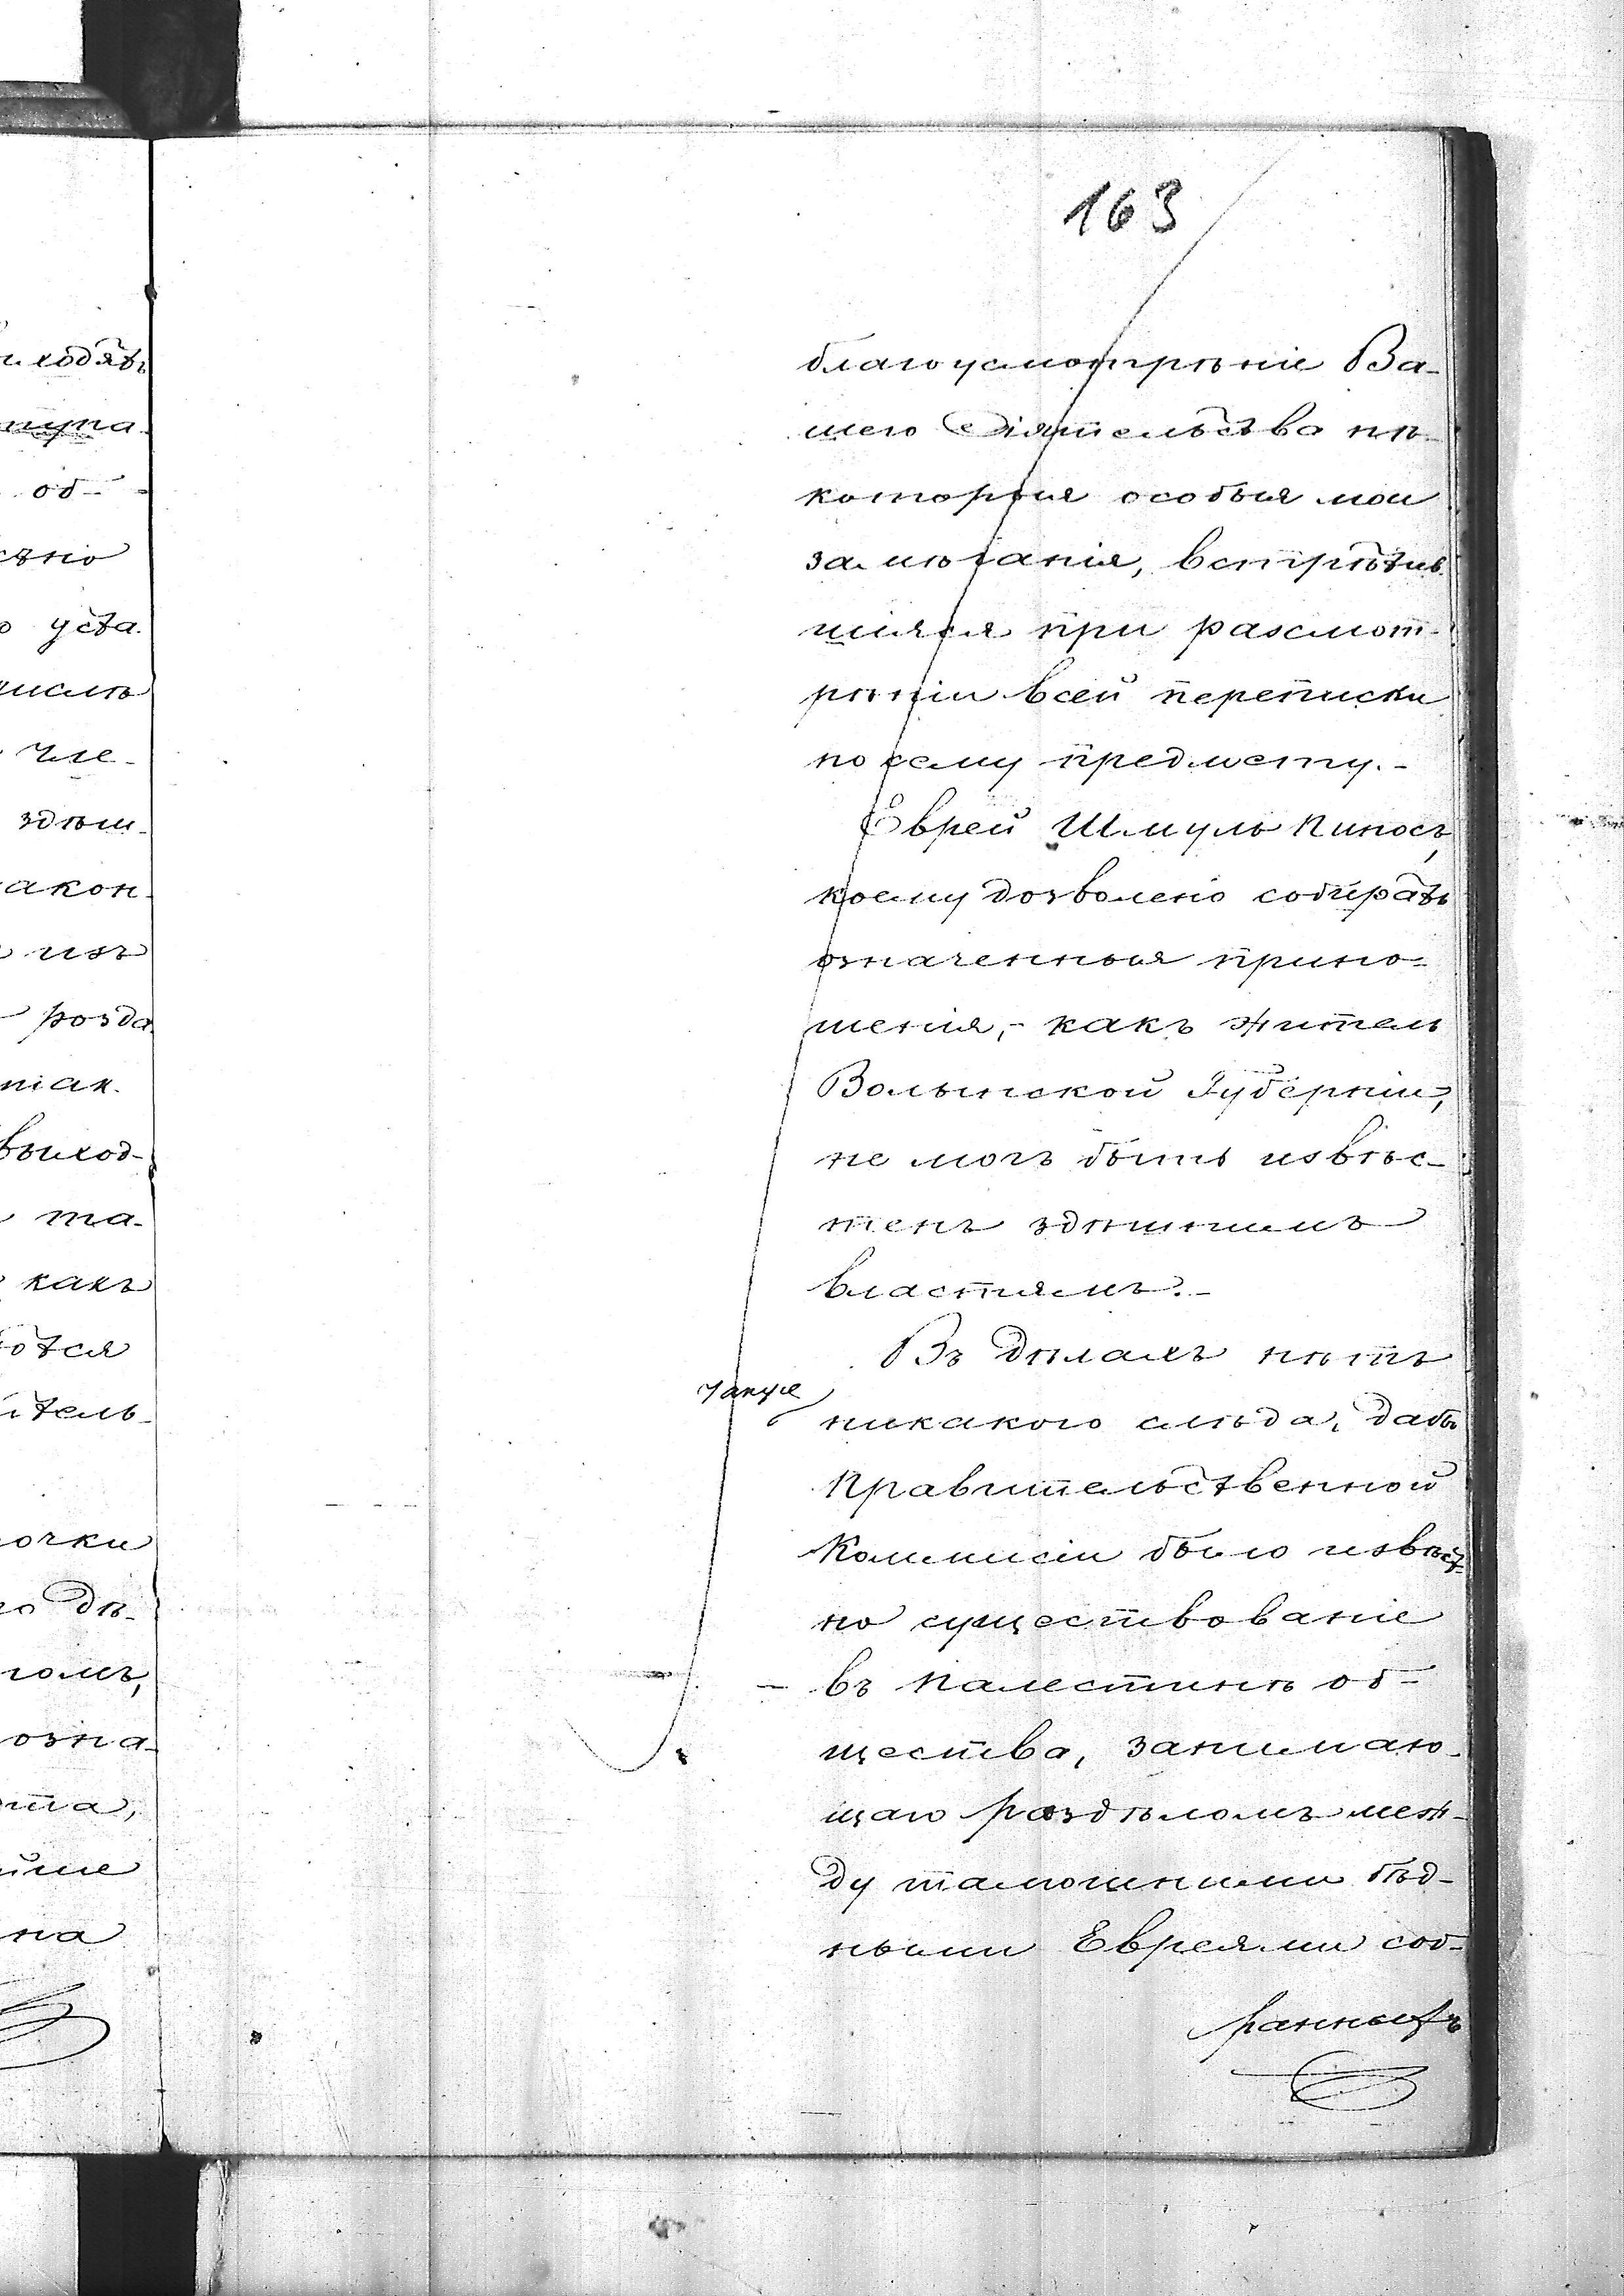 163
благоусмотрѣніе Ва-
шего Сіятельства нѣ-
которыя особыя мои
замѣчанія, встрѣтив-
шіяся при разсмот-
рѣніи всей переписки
по сему предмету.-
Еврей Шмуль Пиносъ,
коему дозволено собирать
означенныя прино-
шенія,- какъ житель
Волынской Губерніи,
не могъ быть извѣс-
тенъ здѣшнимъ
властямъ.-
Въ дѣлахъ нѣтъ
никакого слѣда, дабы
Правительственной
Коммисіи было извѣст-
но существованіе
въ Палестинѣ об-
щества, занимаю-
щаго раздѣломъ меж-
ду тамошними бѣд-
ными Евреями соб-
ранныхъ
ходятъ
об-
уста-
чле-
здѣш-
закон-
изъ
разда
выход-
та-
какъ
ются
итель-
точки
дѣ-
озна-
на